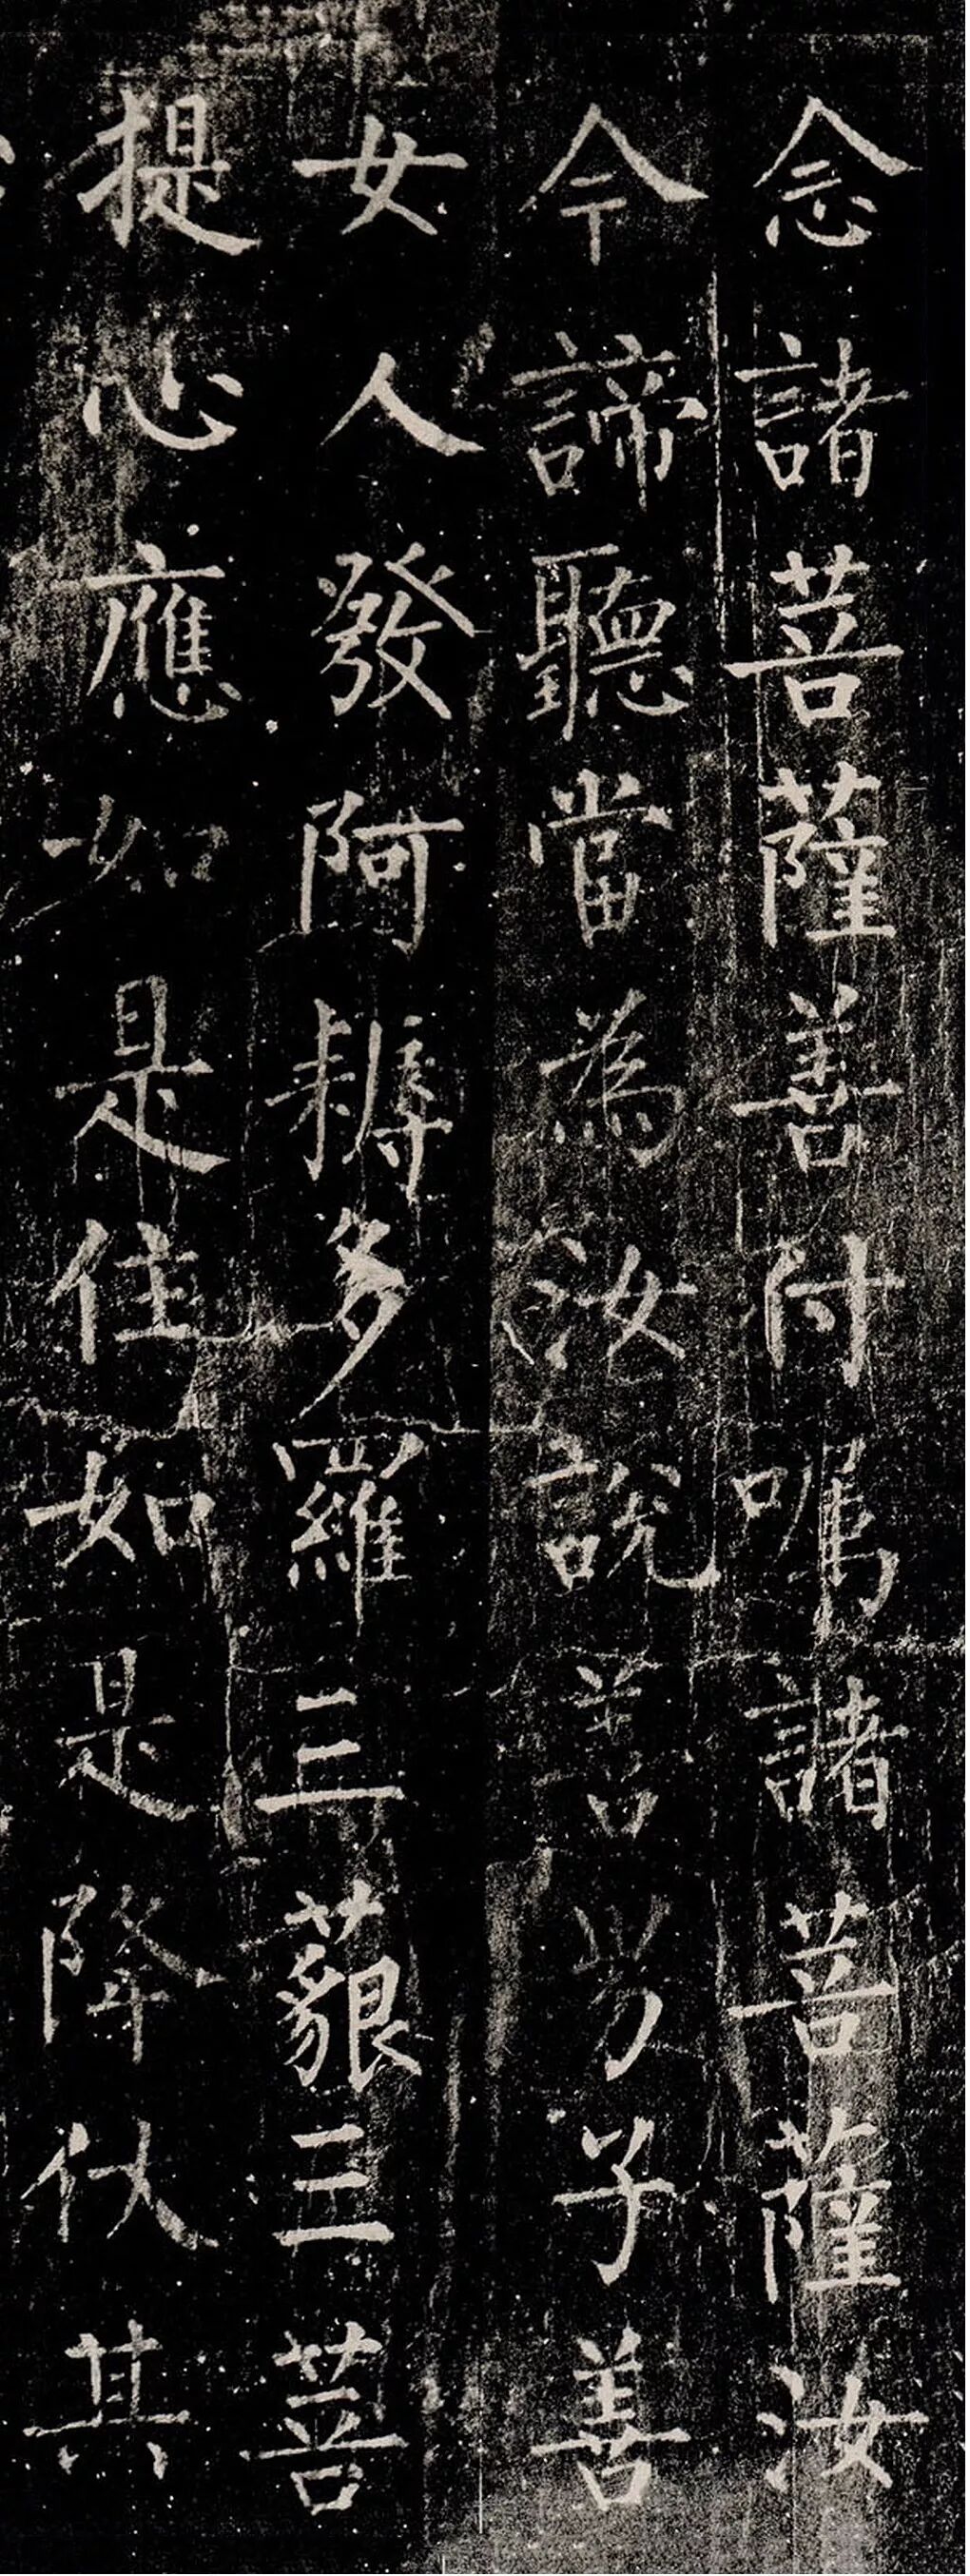 念諸菩薩善付嘱諸菩薩汝
今諦聽當為汝說善男子善
女人發阿耨多羅三藐三菩
提心應如是住如是降伏其